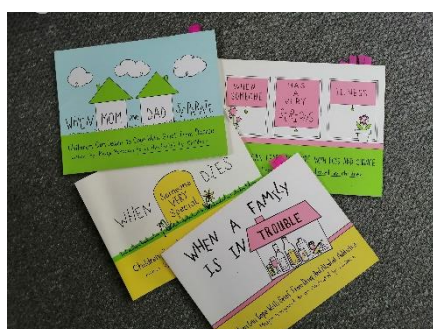 WHEN MOM AND DAD SEPARATE
Children Can Learn to Cope with Grief From Divorce
WHEN SOMEONE
HAS A VERY SERIOUS
ILLNESS
WHEN Someone VERY Special DIES
Children
WHEN A FAMILY
IS IN TROUBLE
Children Can Cope With Grief From Drug And Alcohol Addiction